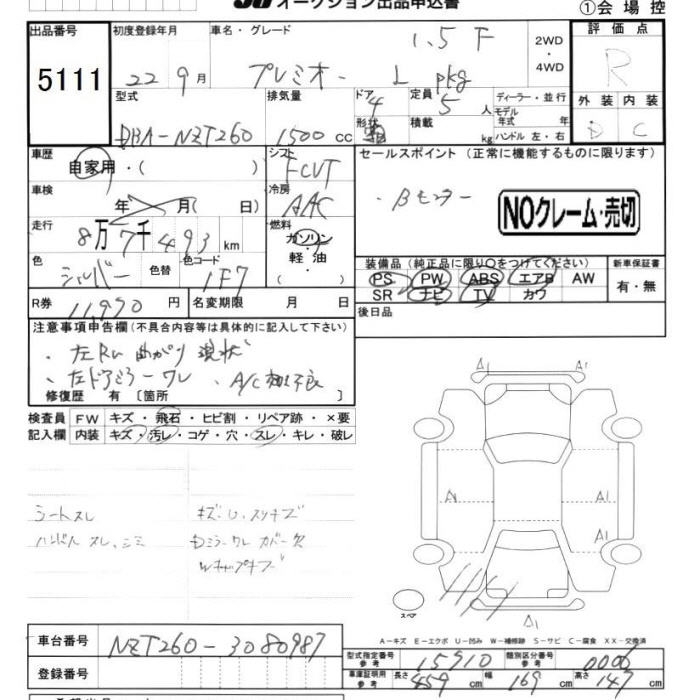 オークション出品申込書
①会場控
出品番号
5111
初度登録年月
22年9月
車名・グレード
プレミオ 1.5 F L pkg
2WD
・
4WD
評価点
R
外装 内装
D C
型式
DBA-NZT260
排気量
1500 cc
ドア
4
形状
定員
5人
積載
kg
ディーラー・並行
モデル年式 年
ハンドル 左・右
車歴
自家用・( )
シフト
FCVT
車検
年 月( 日)
冷房
AAC
走行
8万7千493km
燃料
ガソリン
軽油
( )
色
シルバー
色替
色コード
1F7
R券
11,990円
名変期限 月 日
セールスポイント(正常に機能するものに限ります)
・Bモニター
NOクレーム・売切
装備品(純正品に限り〇をつけてください)
PS PW ABS エアB AW
SR ナビ TV カワ
新車保証書
有・無
後日品
注意事項申告欄(不具合内容等は具体的に記入して下さい)
・左Ru 曲がり 現状
・左ドアミラーワレ ・A/C 不良
修復歴 有 〔箇所 〕
検査員
記入欄
FW キズ・飛石・ヒビ割・リペア跡・×要
内装 キズ・汚レ・コゲ・穴・スレ・キレ・破レ
シートスレ
ハンドル スレ、シミ
キズ・U、スリキズ
Dミラーワレ カバー欠
A1 A1
A1 A1
A1
スペア
A-キズ E-エクボ U-凹み W-補修跡 S-サビ C-腐食 XX-交換済
車台番号
NZT260-3080987
登録番号
型式指定番号
参考
15910
類別区分番号
参考
0006
車庫証明用
参考
長さ 459cm
幅 169cm
高さ 147cm